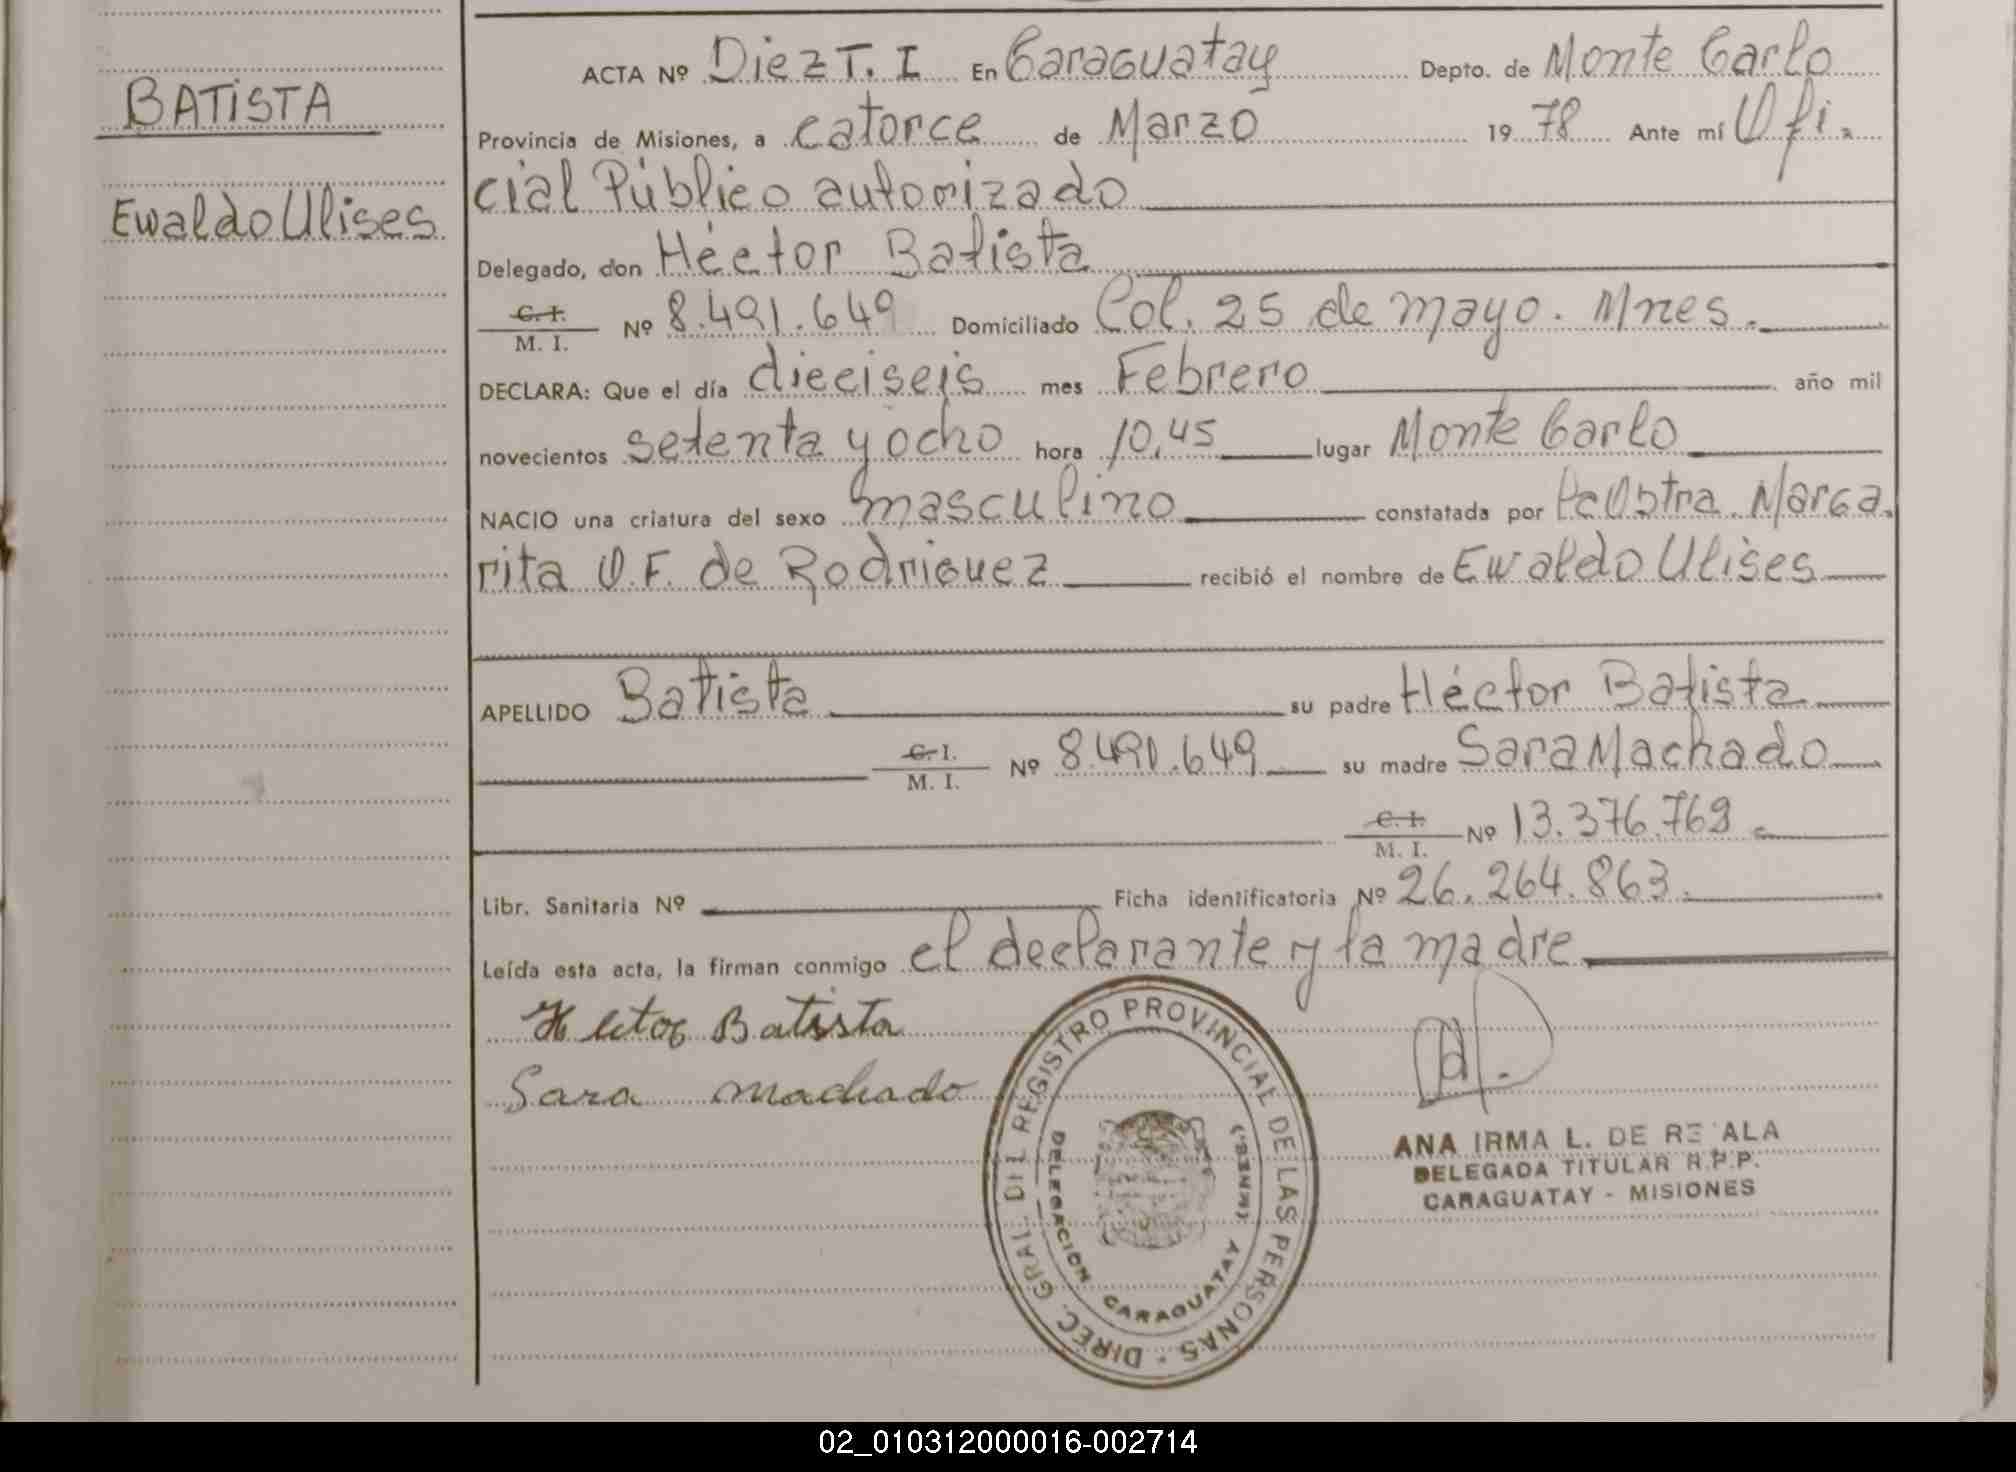 BATISTA
Ewaldo Ulises
ACTA Nº Diez T. I En Caraguatay Depto. de Monte Carlo
Provincia de Misiones, a catorce de Marzo 19 78 Ante mí Ofi.
cial Público autorizado
Delegado, don Héctor Batista
C. I. M. I. Nº 8.491.649 Domiciliado Col. 25 de mayo. Mnes.
DECLARA: Que el día dieciseis mes Febrero año mil
novecientos setenta y ocho hora 10,45 lugar Monte Carlo
NACIO una criatura del sexo masculino constatada por la Obstra. Marga.
rita O.F. de Rodriguez recibió el nombre de Ewaldo Ulises
APELLIDO Batista su padre Héctor Batista
C. I. M. I. Nº 8.491.649 su madre Sara Machado
C. I. M. I. Nº 13.376.769
Libr. Sanitaria Nº Ficha identificatoria Nº 26.264.863.
Leída esta acta, la firman conmigo el declarante y la madre
Hector Batista
Sara machado
DIREC. GRAL. DEL REGISTRO PROVINCIAL DE LAS PERSONAS
DELEGACION CARAGUATAY (MNES.)
ANA IRMA L. DE
DELEGADA TITULAR R.P.P.
CARAGUATAY - MISIONES
02_010312000016-002714